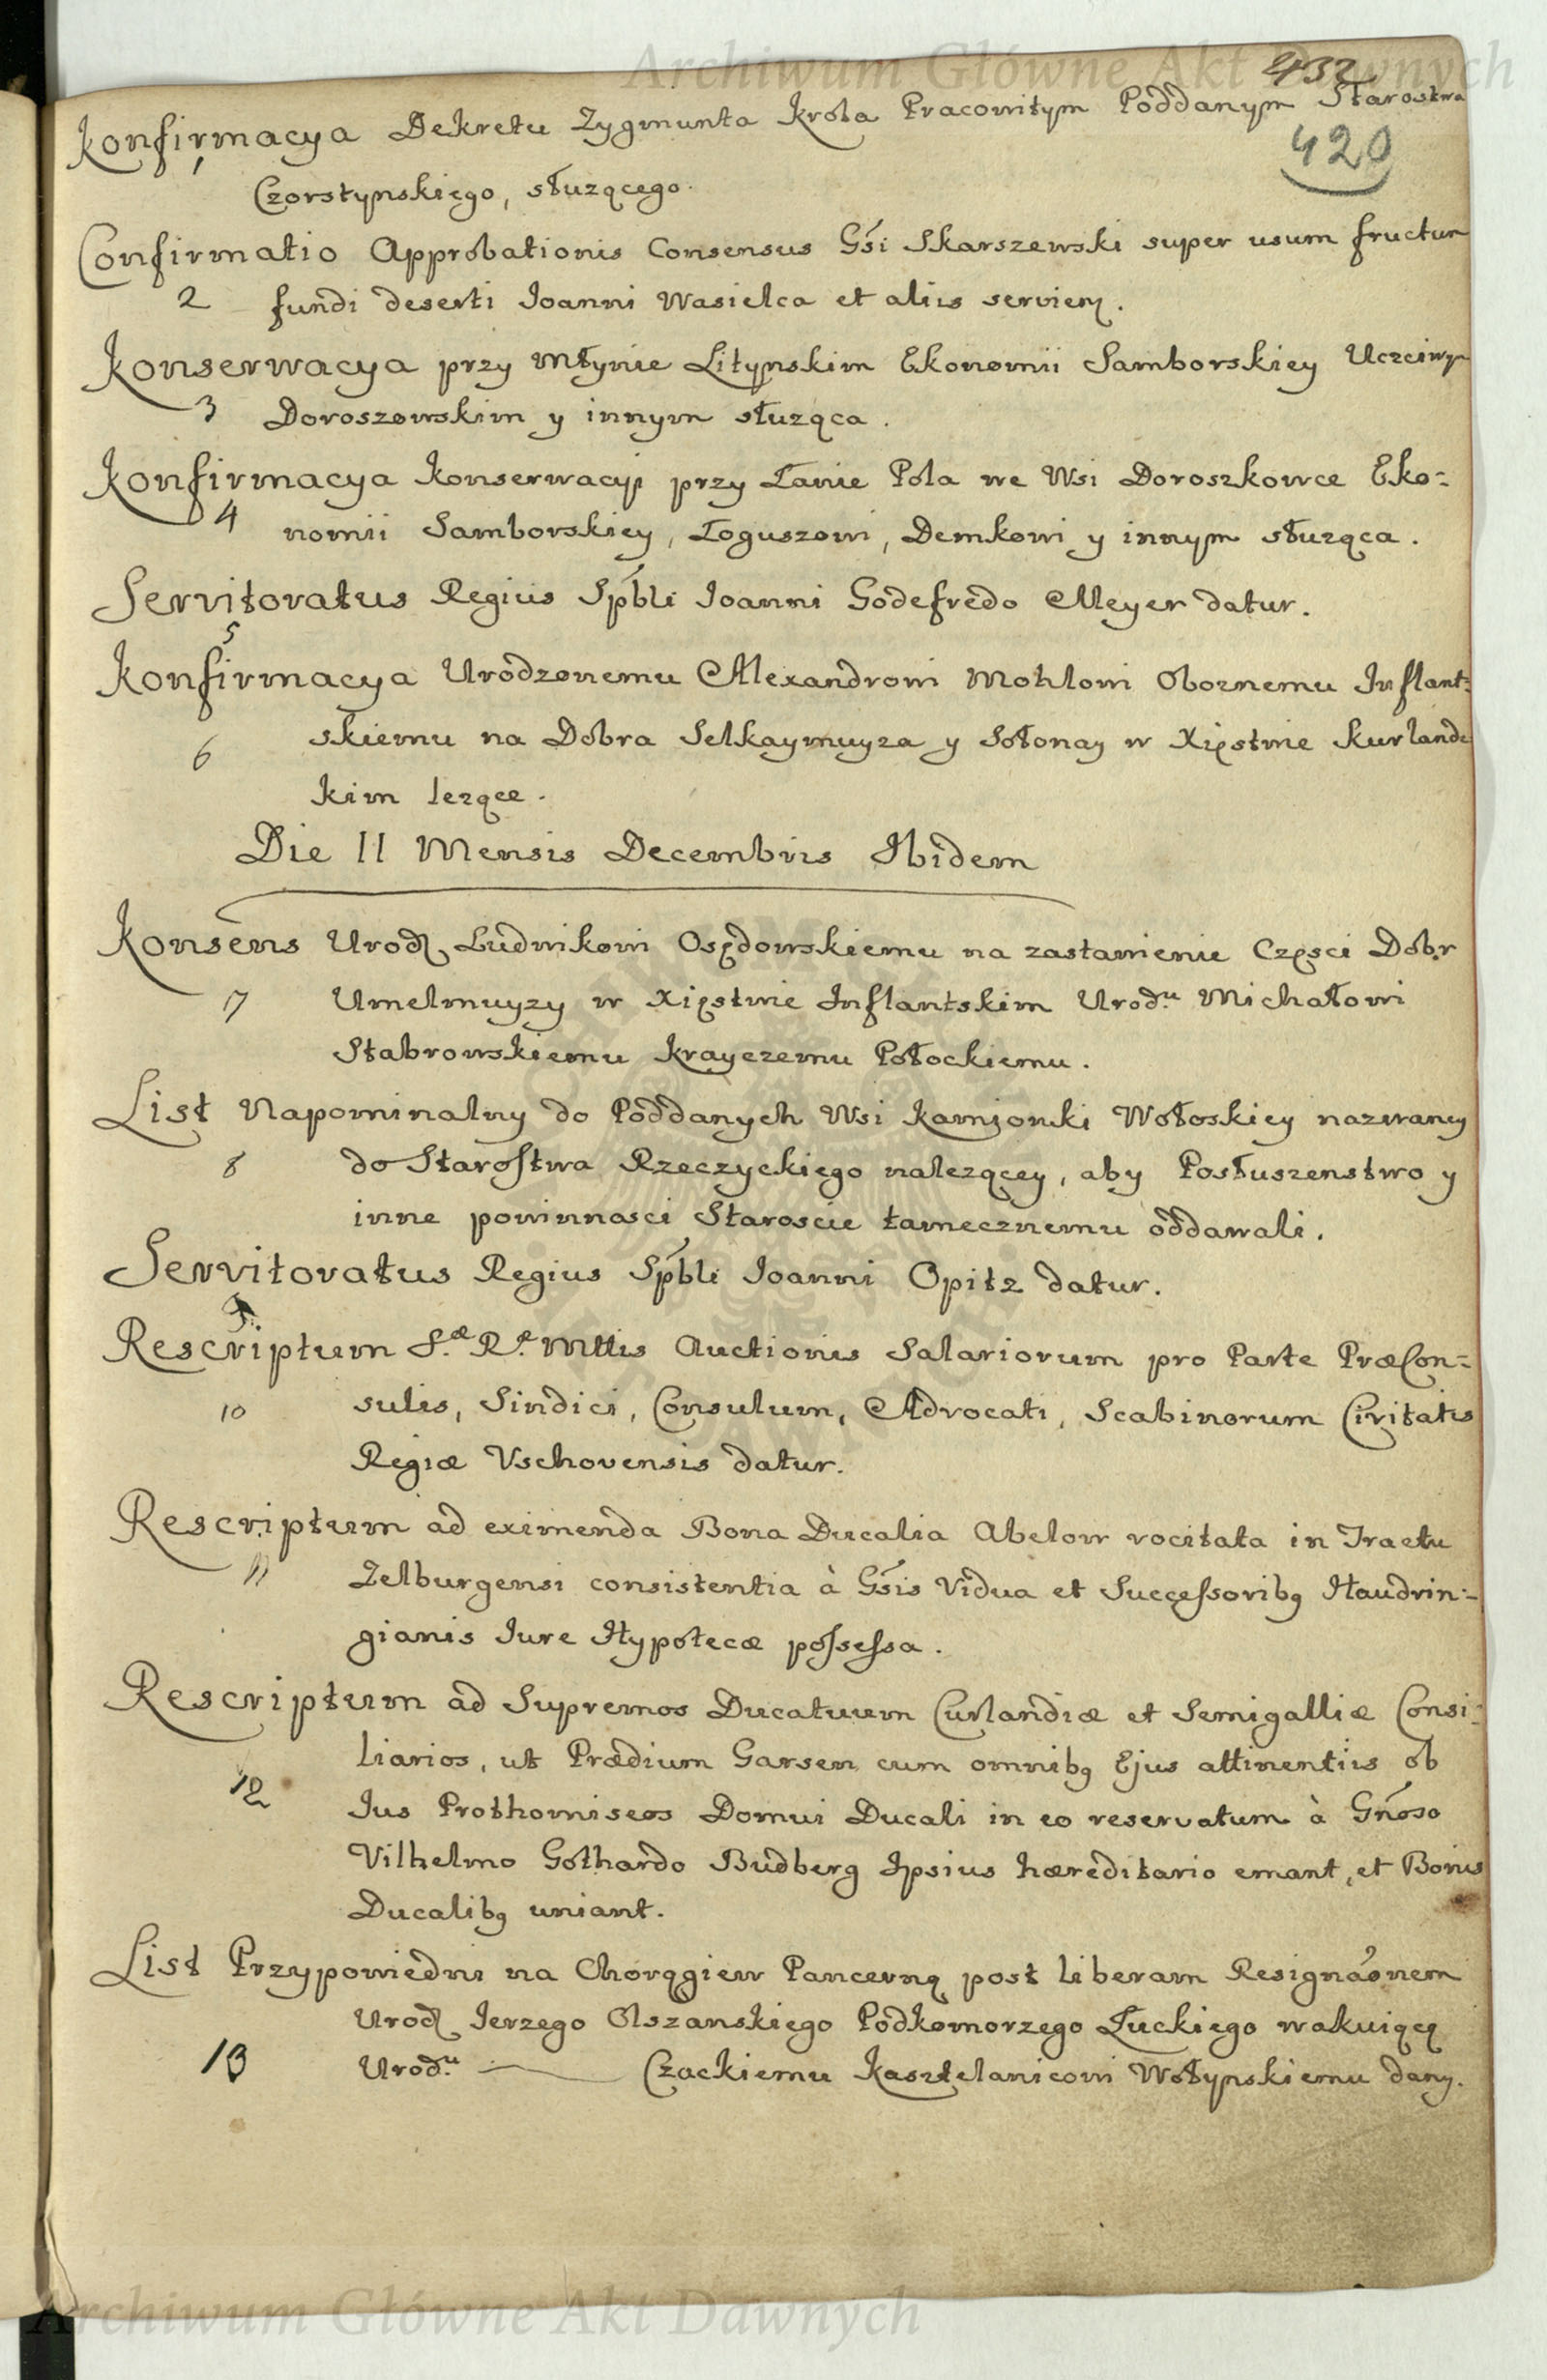 Archiwum Główne Akt Dawnych
432
420
Konfirmacya Dekretu Zygmunta Krola Pracowitym Poddanym Starostwa
1
Czorstynskiego, służącego.
Confirmatio Approbationis Consensus Gsi Skarszewski super usum fructum
2 fundi deserti Joanni Wasielca et aliis servien.
Konserwacya przy Młynie Litynskim Ekonomii Samborskiey Uczciwym
3 Doroszowskim y innym służąca.
Konfirmacya Konserwacyi przy Łanie Pola we Wsi Doroszkowce Eko=
4 nomii Samborskiey, Łoguszowi, Demkowi y innym służąca.
Servitoratus Regius Spbli Joanni Godefredo Meyer datur.
5
Konfirmacya Urodzonemu Alexandrowi Mohlowi Oboznemu Inflant=
6 skiemu na Dobra Selkaymuyza y Sołonay w Xięstwie Kurlands
kim lezące.
Die 11 Mensis Decembris Ibidem
Konsens Urod. Ludwikowi Osędowskiemu na zastawienie Częsci Dobr
7 Umelmuyzy w Xięstwie Inflantskim Urod.u Michałowi
Stabrowskiemu Krayczemu Połockiemu.
List Napominalny do Poddanych Wsi Kamionki Wołoskiey nazwaney
8 do Starostwa Rzeczyckiego nalezącey, aby Posłuszenstwo y
inne powinnosci Staroscie tamecznemu oddawali.
Servitoratus Regius Spbli Joanni Opitz datur.
9.
Rescriptum S.æ R.æ Mttis Auctionis Salariorum pro Parte PræCon=
10 sulis, Sindici, Consulum, Advocati, Scabinorum Civitatis
Regiæ Vschovensis datur.
Rescriptum ad eximenda Bona Ducalia Abelow vocitata in Tractu
11 Zelburgensi consistentia à Gsis Vidua et Successoribq Haudrin=
gianis Jure Hypotecæ possessa.
Rescriptum ad Supremos Ducatuum Curlandiæ et Semigalliæ Consi=
liarios, ut Prædium Garsen cum omnibq Ejus attinentiis ob
12 Jus Prothomiseos Domui Ducali in eo reservatum à Gnoso
Vilhelmo Gothardo Budberg Ipsius hæreditario emant, et Bonis
Ducalibq uniant.
List Przypowiedni na Chorągiew Pancerną post liberam Resignaonem
Urod. Jerzego Olszanskiego Podkomorzego Łuckiego wakuiącą
13 Urod.u — Czackiemu Kasztelanicowi Wołynskiemu dany.
Archiwum Główne Akt Dawnych